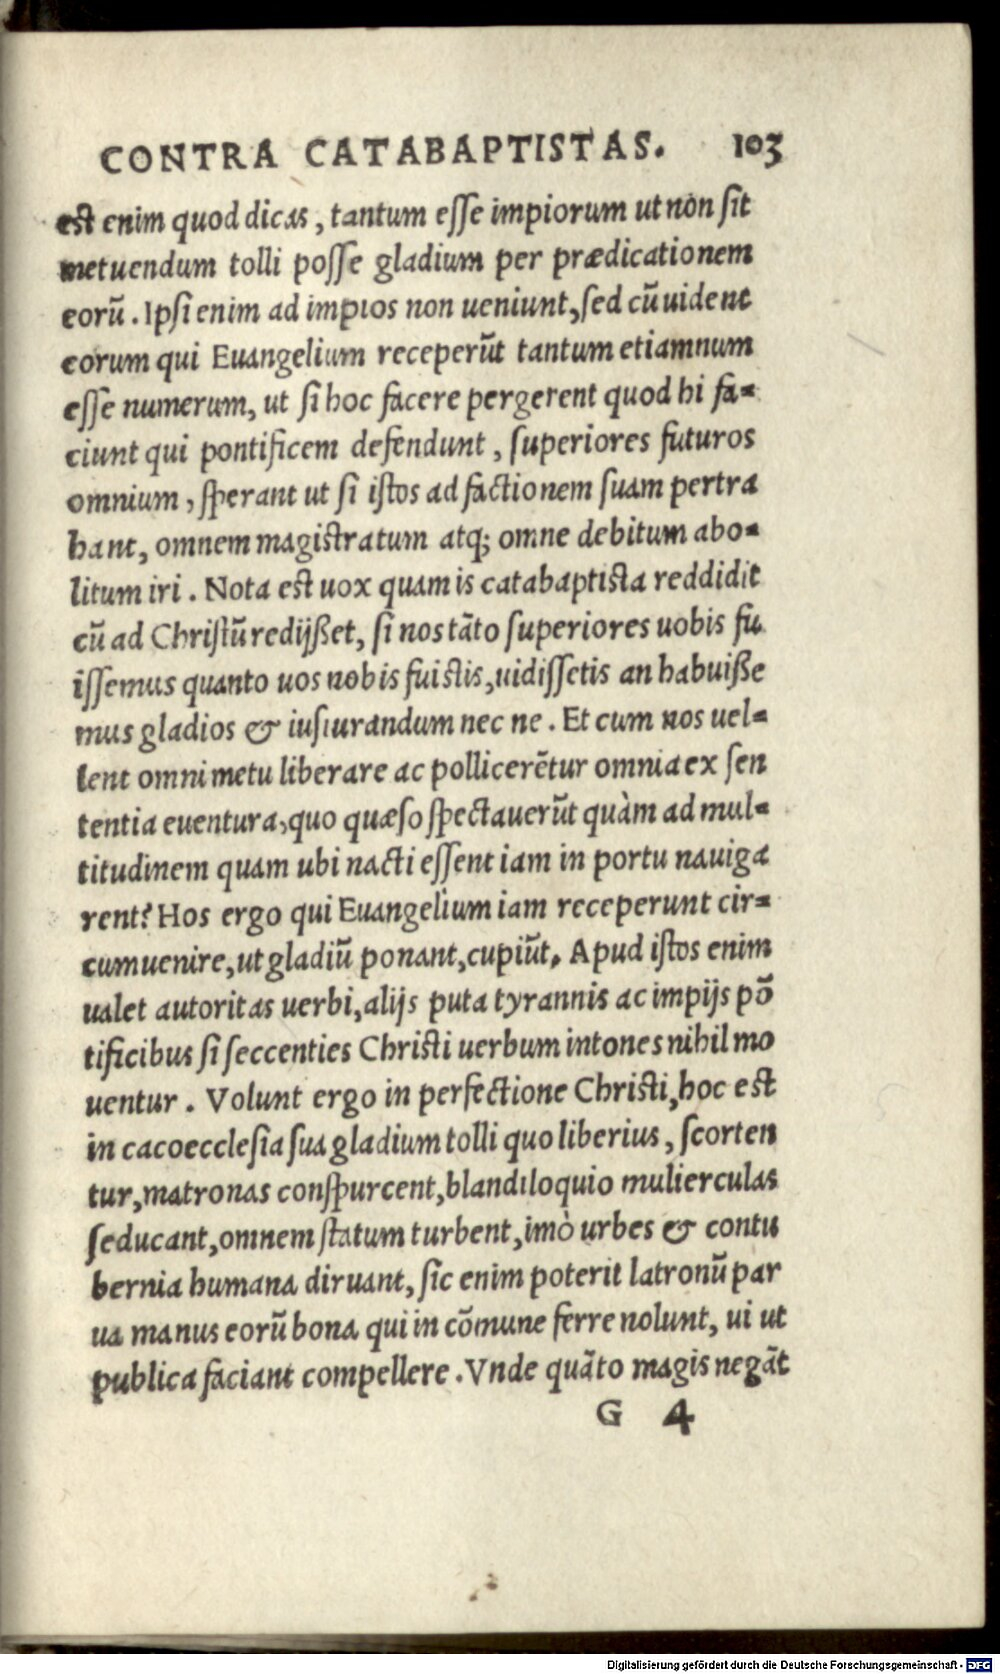 CONTRA CATABAPTISTAS. 103
est enim quod dicas, tantum eſſe impiorum ut non ſit
metuendum tolli poſſe gladium per prædicationem
eorũ. Ipſi enim ad impios non ueniunt, ſed cũ uident
eorum qui Euangelium receperũt tantum etiamnum
eſſe numerum, ut ſi hoc facere pergerent quod hi fa-
ciunt qui pontificem defendunt, ſuperiores futuros
omnium, ſperant ut ſi iſtos ad factionem ſuam pertra
hant, omnem magiſtratum atq; omne debitum abo-
litum iri. Nota est uox quam is catabaptiſta reddidit
cũ ad Chriſtũ redijßet, ſi nos tãto ſuperiores uobis fu
iſſemus quanto uos nobis fuiſtis, uidiſſetis an habuiße
mus gladios & iuſiurandum nec ne. Et cum nos uel-
lent omni metu liberare ac pollicerẽtur omnia ex ſen
tentia euentura, quo quæſo ſpectauerũt quàm ad mul-
titudinem quam ubi nacti eſſent iam in portu nauiga
rent? Hos ergo qui Euangelium iam receperunt cir-
cumuenire, ut gladiũ ponant, cupiũt. Apud iſtos enim
ualet autoritas uerbi, alijs puta tyrannis ac impijs põ
tificibus ſi ſeccenties Chriſti uerbum intones nihil mo
uentur. Volunt ergo in perfectione Chriſti, hoc est
in cacoeccleſia ſua gladium tolli quo liberius, ſcorten
tur, matronas conſpurcent, blandiloquio mulierculas
ſeducant, omnem ſtatum turbent, imò urbes & contu
bernia humana diruant, ſic enim poterit latronũ par
ua manus eorũ bona qui in cõmune ferre nolunt, ui ut
publica faciant compellere. Vnde quãto magis negãt
G 4
Digitalisierung gefördert durch die Deutsche Forschungsgemeinschaft - DFG